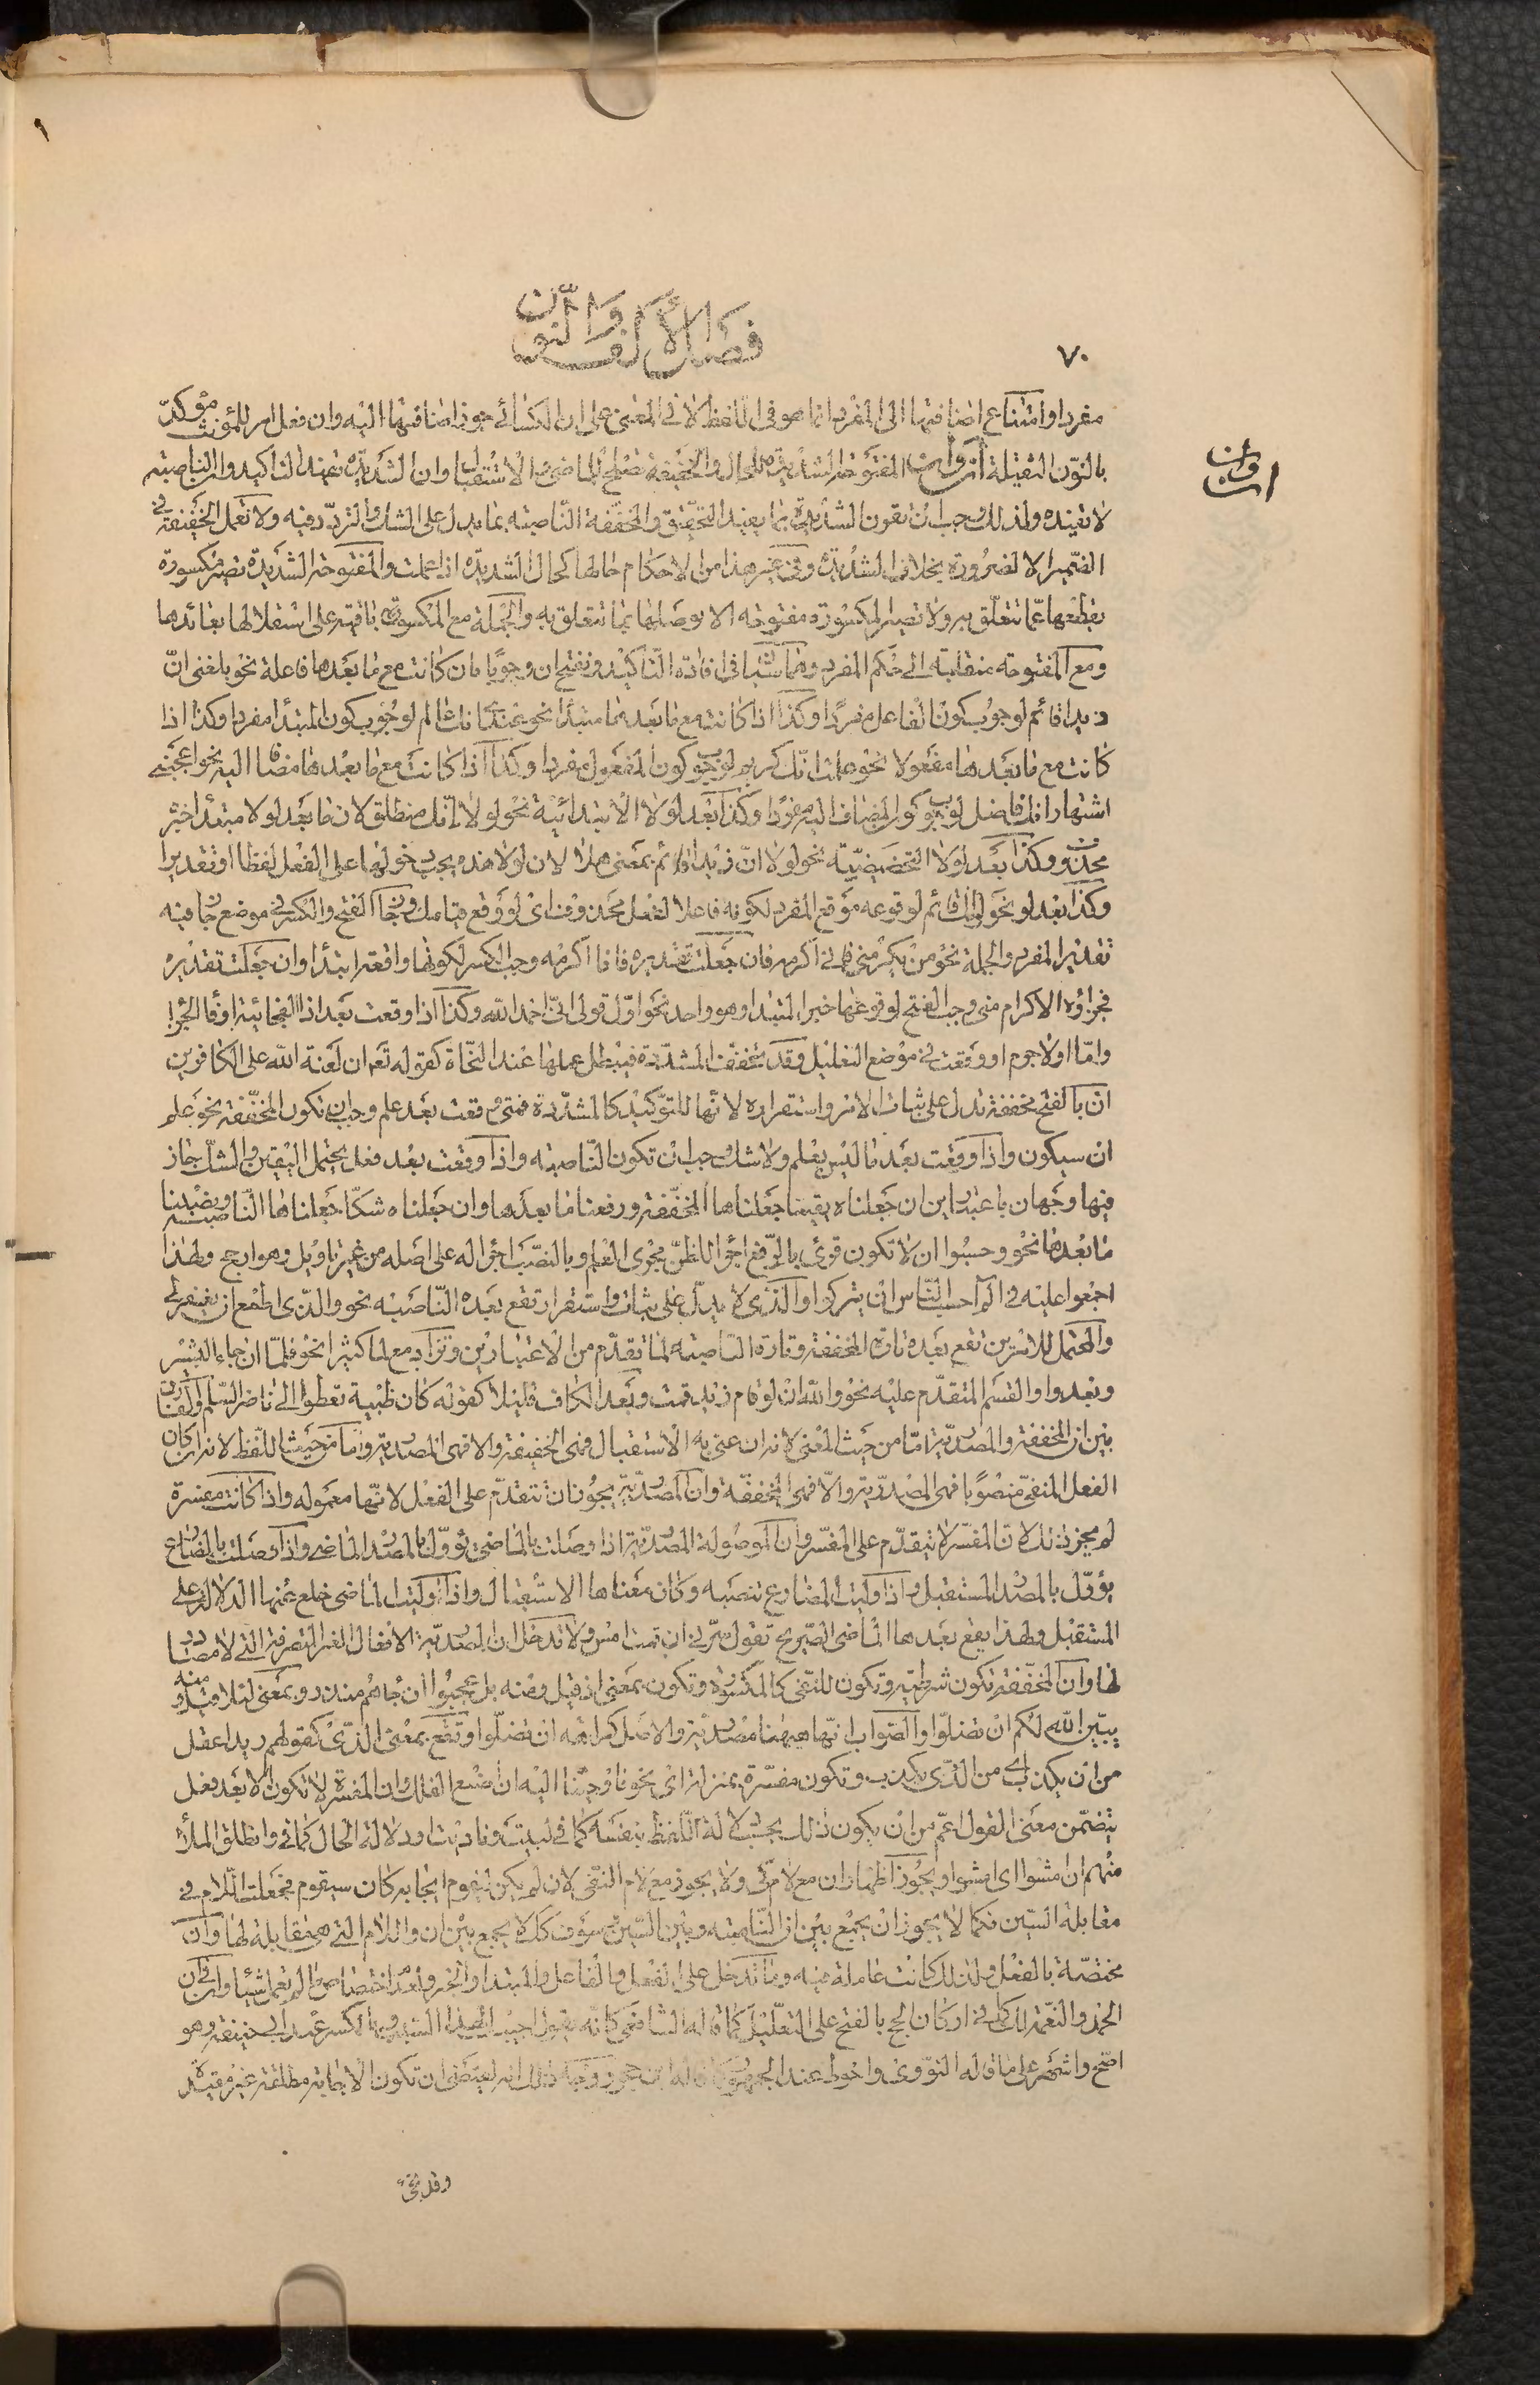 ٧٠
فصل الألف والنون
مفردا وامتناع اضافتها الى المفرد انما هو فى اللفظ لا فى المعنى على ان الكسائى جوز اضافتها اليه وان فعل امر للمؤنث مؤكد
بالنون الثقيلة أنّ وأن المفتوحة الشديدة للحال والخفيفة تصلح للماضى والاستقبال وان الشديدة تفيد التاكيد وان الناصبة
أن وأن
لا تفيده ولذلك وجب ان تقرن الشديدة بما يفيد التحقيق والمخففة الناصبة بما يدل على الشك والتردد فيه ولا تعمل الخفيفة فى
الضمير الا لضرورة بخلاف الشديدة وفى غير هذا من الاحكام حالها كحال الشديدة اذا عملت والمفتوحة الشديدة تصير مكسورة
بقطعها عما تتعلق به ولا تصير المكسورة مفتوحة الا بوصلها بما تتعلق به والجملة مع المكسورة باقية على استقلالها بفائدها
ومع المفتوحة منقلبة الى حكم المفرد وهما سيان فى افادة التاكيد وتفتح ان وجوبا ان كانت مع ما بعدها فاعلة نحو بلغنى انّ
زيدا قائم لوجوب كون الفاعل مفردا وكذا اذا كانت مع ما بعدها مبتدأ نحو عندى انك عالم لوجوب كون المبتدأ مفردا وكذا اذا
كانت مع ما بعدها مفعولا نحو علمت انك كريم لوجوب كون المفعول مفردا وكذا اذا كانت مع ما بعدها مضافا اليه نحو اعجبنى
اشتهار انك فاضل لوجوب كون المضاف اليه مفردا وكذا بعد لولا الابتدائية نحو لولا انك منطلق لان ما بعد لولا مبتدأ خبره
محذوف وكذا بعد لولا التحضيضيّة نحو لولا انّ زيدا قائم بمعنى هلا لان لولا هذه يجب دخولها على الفعل لفظا او تقديرا
وكذا بعد لو نحو لو انك قائم لوقوعه موقع المفرد لكونه فاعلا لفعل محذوف اى لو وقع قيامك وجاز الفتح والكسر فى موضع جاز فيه
تقدير المفرد والجملة نحو من يكرمنى فانى اكرمه فان جعلت تقديره فانا اكرمه وجب الكسر لكونها واقعة ابتدأ وان جعلت تقديره
فجزاؤه الاكرام منى وجب الفتح لوقوعها خبرا لمبتدأ وهو واحد نحو اول قولى انى احمد الله وكذا اذا وقعت بعد اذا الفجائية او فا الجزاء
واما او لا جرم او وقعت فى موضع التعليل وقد تخفف المشددة فيبطل عملها عند النحاة كقوله تعم ان لعنة الله على الكافرين
ان بالفتح مخففة تدل على ثبات الامر واستقراره لانها للتوكيد كالمشددة فمتى وقعت بعد علم وجب ان تكون المخففة نحو علم
ان سيكون واذا وقعت بعد ما ليس بعلم ولا شك وجب ان تكون الناصبة واذا وقعت بعد فعل يحتمل اليقين والشك جاز
فيها وجهان باعتبارين ان جعلناه يقينا جعلناها المخففة ورفعنا ما بعدها وان جعلناه شكا جعلناها الناصبة ونصبنا
ما بعدها نحو وحسبوا ان لا تكون قرئ بالرفع اجراء للظن مجرى العلم وبالنصب اجراء له على اصله من غير تاويل وهو ارجح ولهذا
اجمعوا عليه فى الم احسب الناس ان يتركوا والذى لا يدل على ثبات واستقرار تقع بعده الناصبة نحو والذى اطمع ان يغفر لى
والمحتمل للامرين تقع بعده تارة المخففة وتارة الناصبة لما تقدم من الاعتبارين وتزاد مع لما كثيرا نحو فلما ان جاء البشير
وبعد واو القسم المتقدم عليه نحو والله ان لو قام زيد قمت وبعد الكاف قليلا كقوله كان ظبية تعطو الى ناضر السلم والفارق
بين ان المخففة والمصدرية اما من حيث المعنى لانه ان عنى به الاستقبال فهى الخفيفة والا فهى المصدرية واما من حيث اللفظ لانه ان كان
الفعل المنفى منصوبا فهى المصدرية والا فهى المخففة وان المصدرية يجوز ان تتقدم على الفعل لانها معموله واذا كانت مفسرة
لم يجز ذلك لان المفسر لا يتقدم على المفسر وان الموصولة المصدرية اذا وصلت بالماضى يؤول بالمصدر الماضى واذا وصلت بالمضارع
يؤول بالمصدر المستقبل واذا وليت المضارع تنصبه وكان معناها الاستقبال واذا وليت الماضى خلع عنها الدلالة على
المستقبل ولهذا يقع بعدها الماضى الصريح تقول سرنى ان قمت امس ولا تدخل ان المصدرية الافعال الغير المتصرفة التى لا مصادر
لها وان المخففة تكون شرطية وتكون للنفى كالمكسورة وتكون بمعنى اذ قيل ومنه بل عجبوا ان جاءهم منذر وبمعنى لئلا قيل ومنه
يبين الله لكم ان تضلوا والصواب انها ههنا مصدرية والاصل كراهة ان تضلوا وتقع بمعنى الذى كقولهم زيد اعقل
من ان يكذب اى من الذى يكذب وتكون مفسرة بمنزلة اى نحو فاوحينا اليه ان اصنع الفلك وان المفسرة لا تكون الا بعد فعل
يتضمن معنى القول اعم من ان يكون ذلك بحسب دلالة اللفظ بنفسه كما فى لبيت وناديت او دلالة الحال كما فى وانطلق الملأ
منهم ان امشوا اى امشوا ويجوز اظهار ان مع لام كى ولا يجوز مع لام النفى لان لم يكن ليقوم ايجابه كان سيقوم فجعلت اللام فى
مقابلة السين فكما لا يجوز ان يجمع بين ان الناصبة وبين السين وسوف كك لا يجمع بين ان واللام التى هى مقابلة لها وان
مختصة بالفعل ولذلك كانت عاملة فيه وما تدخل على الفعل والفاعل والمبتدا والخبر ولعدم اختصاصها لم تعمل شيئا وان فى ان
الحمد والنعمة لك كما فى اركان الحج بالفتح على التعليل كما قاله الشافعى كانه يقول اجيب لهذا السبب وبالكسر عند ابى حنيفة وهو
اصح واشهر على ما قاله النووى واحوط عند الجمهور كما قاله ابن حجر ووجه ذلك انه يقتضى ان تكون الاجابة مطلقة غير مقيدة
وقد تجئ